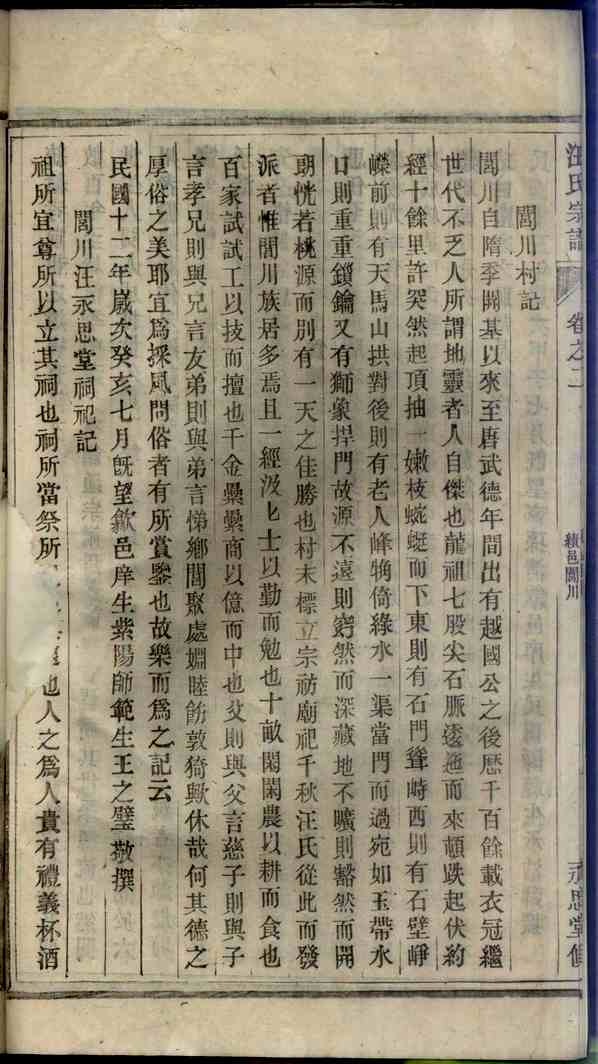 汪氏宗譜
卷之二
績邑閬川
永思堂修
閬川村記
閬川自隋季闢基以來至唐武德年間出有越國公之後歷千百餘載衣冠繼
世代不乏人所謂地靈者人自傑也龍祖七股尖石脈逶迤而來頓跌起伏約
經十餘里許突然起頂抽一嫩枝蜿蜒而下東則有石門聳峙西則有石壁崢
嶸前則有天馬山拱對後則有老人峰犄倚綠水一渠當門而過宛如玉帶水
口則重重鎖鑰又有獅象捍門故源不遠則窈然而深藏地不曠則豁然而開
朗恍若桃源而別有一天之佳勝也村末標立宗祊廟祀千秋汪氏從此而發
派者惟閬川族居多焉且一經汲汲士以勤而勉也十畝閑閑農以耕而食也
百家試試工以技而擅也千金纍纍商以億而中也父則與父言慈子則與子
言孝兄則與兄言友弟則與弟言悌鄉閭聚處婣睦飭敦猗歟休哉何其德之
厚俗之美耶宜為採風問俗者有所賞鑒也故樂而為之記云
民國十二年歲次癸亥七月既望歙邑庠生紫陽師範生王之璧敬撰
閬川汪永思堂祠祀記
祖所宜尊所以立其祠也祠所當祭所也人之為人貴有禮義杯酒